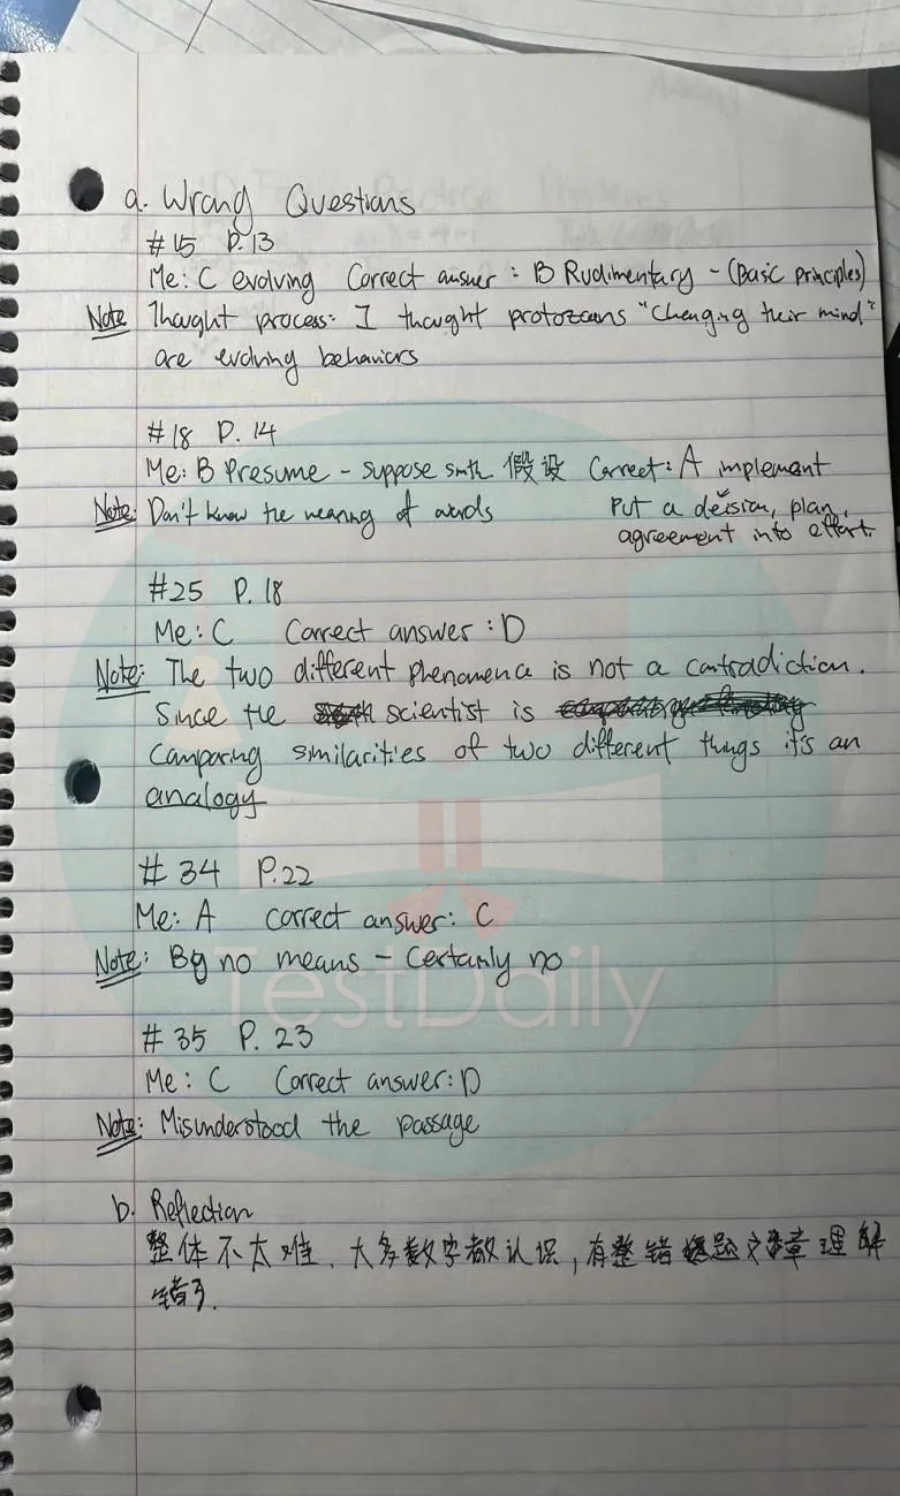 a. Wrong Questions
#15 P.13
Me: C evolving Correct answer: B Rudimentary - (Basic principles)
Note Thought process: I thought protozoans "Changing their mind"
are evolving behaviors
#18 P. 14
Me: B Presume - suppose smth 假设 Correct: A implement
Note: Don't know the meaning of words Put a decision, plan,
agreement into effort.
#25 P. 18
Me: C Correct answer: D
Note: The two different phenomena is not a contradiction.
Since the scientist is
Comparing similarities of two different things it's an
analogy
# 34 P.22
Me: A correct answer: C
Note: By no means - Certainly no
TestDaily
# 35 P. 23
Me: C Correct answer: D
Note: Misunderstood the passage
b. Reflection
整体不太难. 大多数字都认识, 有整错题文章理解
错了.